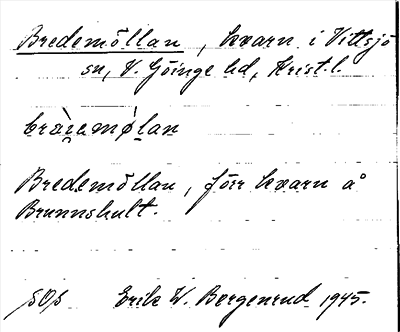 Bredemöllan, kvarn i Vittsjö
sn, V. Göinge hd, Krist.l.
Bredemöllan, förr kvarn å
Brunnshult.
SOS Erik W. Bergenrud 1945.